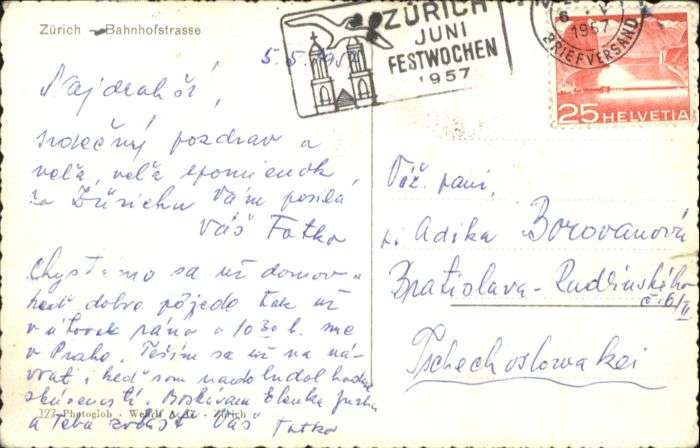 Zürich - Bahnhofstrasse
5.5.1957
Najdrahší,
srdečný pozdrav a
veľa, veľa spomienok
zo Zürichu Vám posiela
Váš Fatko
Chystámo sa už domov a
keď dobre pôjde tak už
v útorok ráno o 10 30 h. sme
v Prahe. Tešim sa už na ná-
vrat, keď som nadobudol
skúseností. Boskávam Elenku
a Teba zvlášť Váš
Fatko
127 Photoglob - Wehrli A.G. - Zürich
ZÜRICH
JUNI
FESTWOCHEN
1957
6. V.
1957
BRIEFVERSAND
25 HELVETIA
Váž. pani,
Adika Borovanová
Bratislava - Radlinského
č. 6/II
Tschechoslowakei